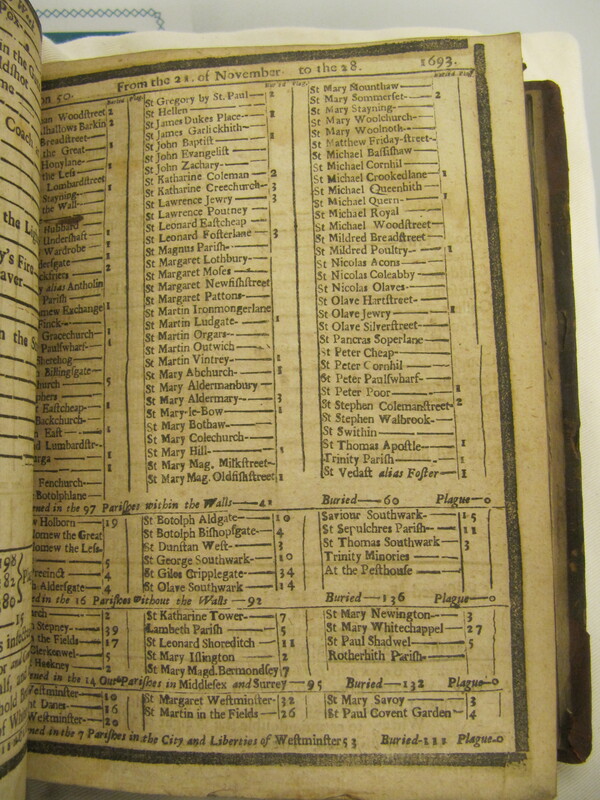 on 50. From the 21. of November to the 28. 1693.
Buried Plag. Buried Plag. Buried Plag.
an Woodstreet 2
lhallows Barkin 2
Breadstreet
the Great 1
Honylane
the Less
Lombardstreet
Stayning
the Wall
Hubbard
Undershaft 1
Wardrobe 1
dersgate 1
2
y alias Antholin
Parish
mew Exchange 1
Finck
Gracechurch 1
Paulswharf 1
Sherehog
s Billingsgate
hurch 5
Eastcheap 1
Backchurch
East 1
d Lumbardstr
1
1
Fenchurch
Botolphlane
St Gregory by St. Paul 2
St Hellen
St James Dukes Place 1
St James Garlickhith
St John Baptist 1
St John Evangelist
St John Zachary
St Katharine Coleman 2
St Katharine Creechurch 3
St Lawrence Jewry 3
St Lawrence Pourney
St Leonard Eastcheap
St Leonard Fosterlane 3
St Magnus Parish
St Margaret Lothbury
St Margaret Moses
St Margaret Newfishstreet
St Margaret Pattons
St Martin Ironmongerlane
St Martin Ludgate 1
St Martin Orgars
St Martin Outwich
St Martin Vintrey 1
St Mary Abchurch 1
St Mary Aldermanbury
St Mary Aldermary 3
St Mary-le-Bow 1
St Mary Bothaw
St Mary Colechurch
St Mary Hill 1
St Mary Mag. Milkstreet
St Mary Mag. Oldfishstreet 1
St Mary Mounthaw
St Mary Sommerset 2
St Mary Stayning
St Mary Woolchurch
St Mary Woolnoth
St Matthew Friday-street
St Michael Bassishaw
St Michael Cornhil
St Michael Crookedlane 1
St Michael Queenhith
St Michael Quern 1
St Michael Royal
St Michael Woodstreet
St Mildred Breadstreet
St Mildred Poultry 1
St Nicolas Acons
St Nicolas Coleabby
St Nicolas Olaves
St Olave Hartstreet
St Olave Jewry 1
St Olave Silverstreet
St Pancras Soperlane
St Peter Cheap
St Peter Cornhil
St Peter Paulswharf
St Peter Poor 1
St Stephen Colemanstreet 2
St Stephen Walbrook
St Swithin
St Thomas Apostle 1
Trinity Parish 1
St Vedast alias Foster 1
ned in the 97 Parishes within the Walls—42 Buried—60 Plague—0
w Holborn 19
lomew the Great
lomew the Less
5
Precinct 4
h Aldersgate 4
St Botolph Aldgate 10
St Botolph Bishopsgate 4
St Dunstan West 3
St George Southwark 10
St Giles Cripplegate 34
St Olave Southwark 14
Saviour Southwark 15
St Sepulchres Parish 11
St Thomas Southwark 3
Trinity Minories
At the Pesthouse
ed in the 16 Parishes without the Walls—92 Buried—136 Plague—0
urch 2
Stepney 39
the Fields 17
Clerkenwel 5
Hackney 2
St Katharine Tower 7
Lambeth Parish 5
St Leonard Shoreditch 11
St Mary Islington 2
St Mary Magd. Bermondsey 7
St Mary Newington 3
St Mary Whitechappel 27
St Paul Shadwel 5
Rotherhith Parish
ned in the 14 Out-Parishes in Middlesex and Surrey—95 Buried—132 Plague—0
Westminster 10
nt Danes 16
Westminster 20
St Margaret Westminster 32
St Martin in the Fields 26
St Mary Savoy 3
St Paul Covent Garden 4
ned in the 7 Parishes in the City and Liberties of Westminster 53 Buried—111 Plague—0